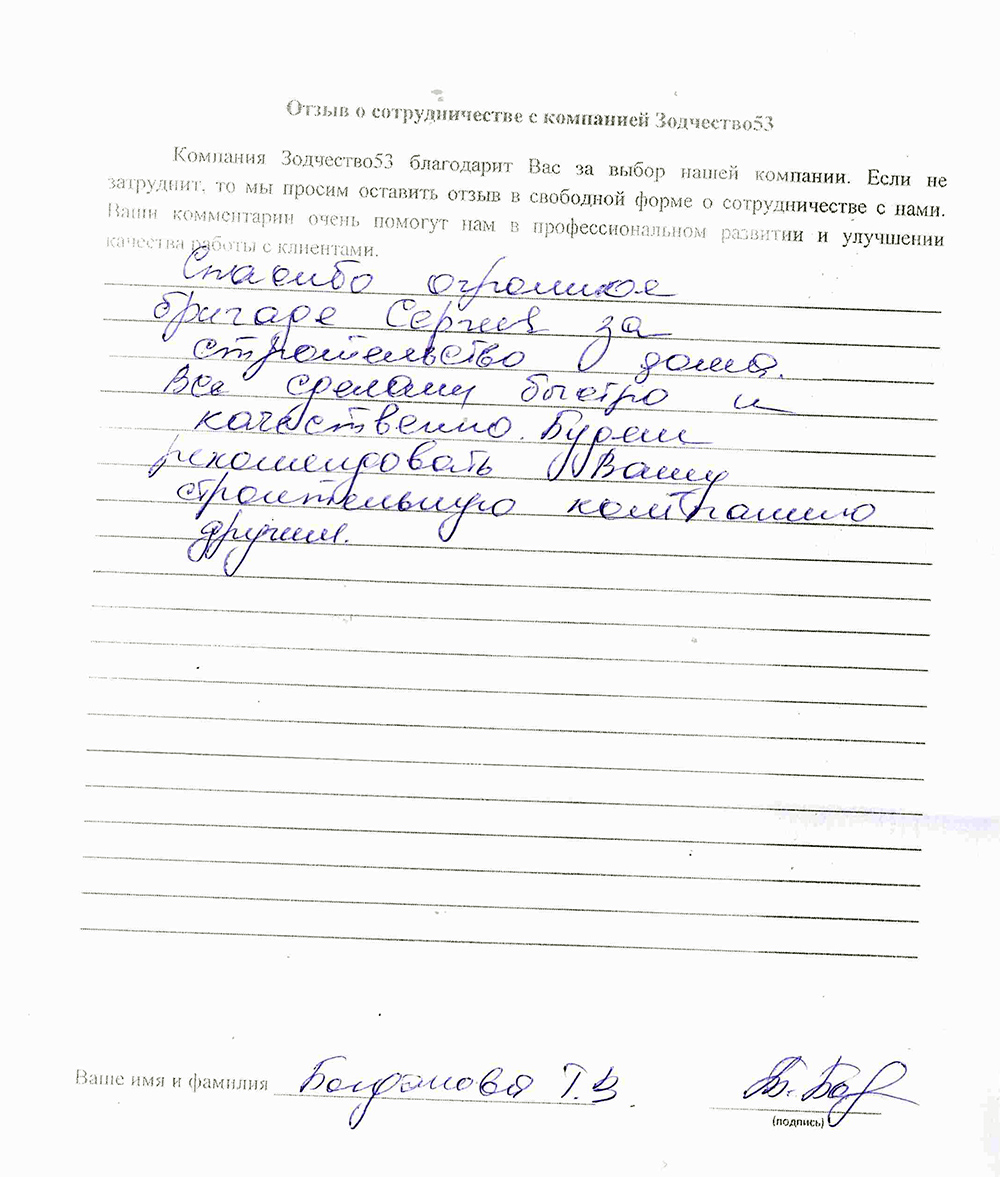 Отзыв о сотрудничестве с компанией Зодчество53
Компания Зодчество53 благодарит Вас за выбор нашей компании. Если не
затруднит, то мы просим оставить отзыв в свободной форме о сотрудничестве с нами.
Ваши комментарии очень помогут нам в профессиональном развитии и улучшении
качества работы с клиентами.
Спасибо огромное
бригаде Сергея за
строительство дома.
Все сделали быстро и
качественно. Будем
рекомендовать Вашу
строительную компанию
другим.
Ваше имя и фамилия Богданова Т.В
(подпись)